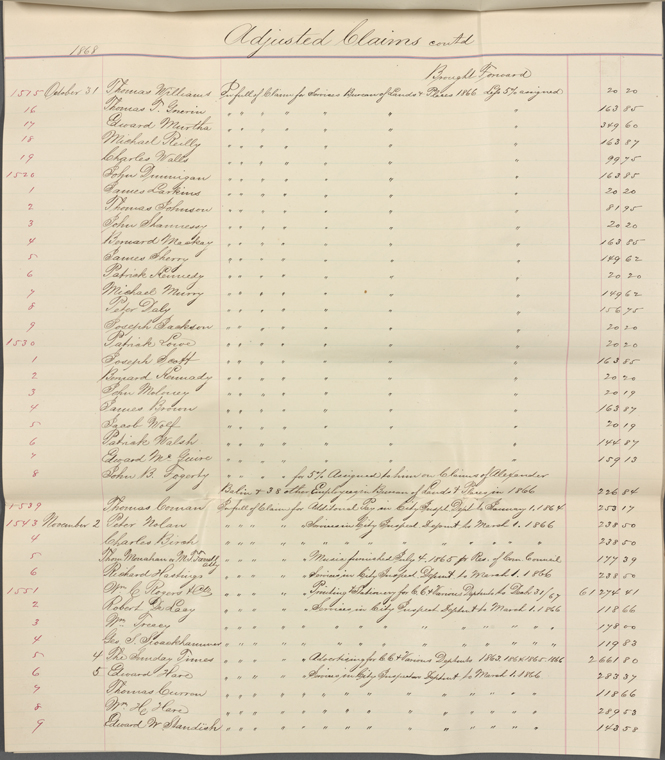 1868
Adjusted Claims contd
Brought Forward
1515 October 31 Thomas Williams In full of Claim for Services Bureau of Lands & Places 1866 less 5% assigned 20 20
16 Thomas T. " " " " " " " 163 85
17 Edward Murtha " " " " " " " 349 60
18 Michael Reilly " " " " " " " 163 87
19 Charles Walls " " " " " " " 99 75
1520 John Dunnigan " " " " " " " 163 85
1 James Larkins " " " " " " " 20 20
2 Thomas Johnson " " " " " " " 81 95
3 John Shannessy " " " " " " " 20 20
4 Bernard Mackay " " " " " " " 163 85
5 James Sherry " " " " " " " 149 62
6 Patrick Kennedy " " " " " " " 20 20
7 Michael Murry " " " " " " " 149 62
8 Peter Daly " " " " " " " 156 75
9 Joseph Jackson " " " " " " " 20 20
1530 Patrick Lowe " " " " " " " 20 20
1 Joseph Scott " " " " " " " 163 85
2 Bernard Kennady " " " " " " " 20 20
3 John Moloney " " " " " " " 20 19
4 James Brown " " " " " " " 163 87
5 Jacob Wolf " " " " " " " 20 19
6 Patrick Walsh " " " " " " " 144 87
7 Edward McGuire " " " " " " " 159 13
8 John B. Fogerty " " " " for 5% Assigned to him on Claims of Alexander
& 38 other Employees in Bureau of Lands & Places in 1866 226 84
1539 Thomas Coman In full of Claim for Additional Pay in City Inspect Dept to January 1. 1864 250 17
1543 November 2 Peter Nolan " " " " Services in City Inspect Depmt to March 1. 1866 238 50
4 Charles Birch " " " " " " " " " 238 50
5 Thos Monahan " " " " Music furnished July 4. 1865 for Res. of Com Council 177 39
6 Richard Hastings " " " " Services in City Inspect Depmt to March 1. 1866 238 50
1551 Wm C Rogers & Co " " " " Printing & Stationery for C.C & Various Depmts to Decbr 31/67 61 274 41
2 Robert " " " " Services in City Inspect Depmt to March 1. 1866 118 66
3 Wm Treacy " " " " " " " " " 178 00
4 Geo. S. " " " " " " " " " 119 83
5 4 The Sunday Times " " " " Advertising for C.C & Various Depmts 1863.1864.1865.1866 2 661 80
6 5 Edward Hare " " " " Services in City Inspectors Depmt to March 1. 1866 283 37
7 Thomas Curran " " " " " " " " " 118 66
8 Wm H. Hare " " " " " " " " " 289 53
9 Edward W Standish " " " " " " " " " 143 58